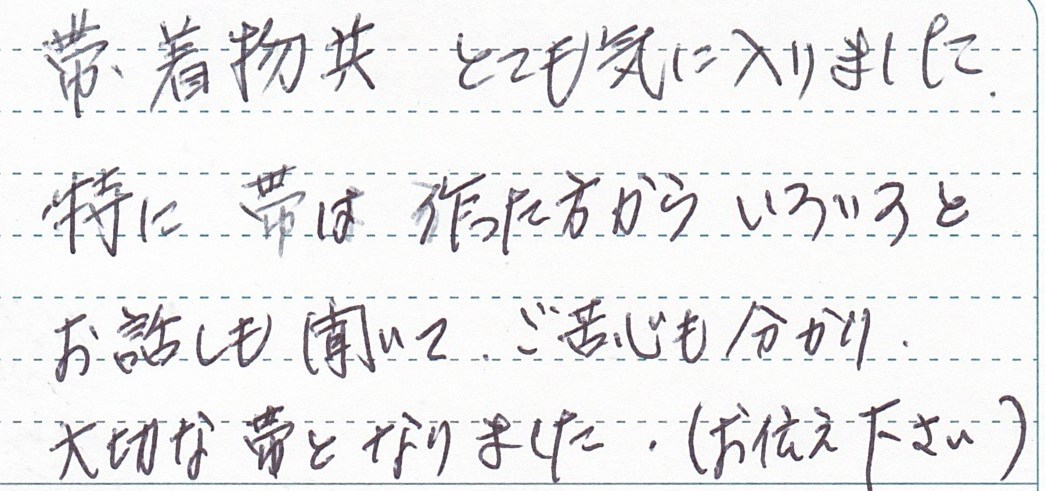 帯、着物共 とても気に入りました.
特に 帯は 作った方から いろいろと
お話しも聞いて.ご苦心も分かり.
大切な帯となりました.(お伝え下さい)